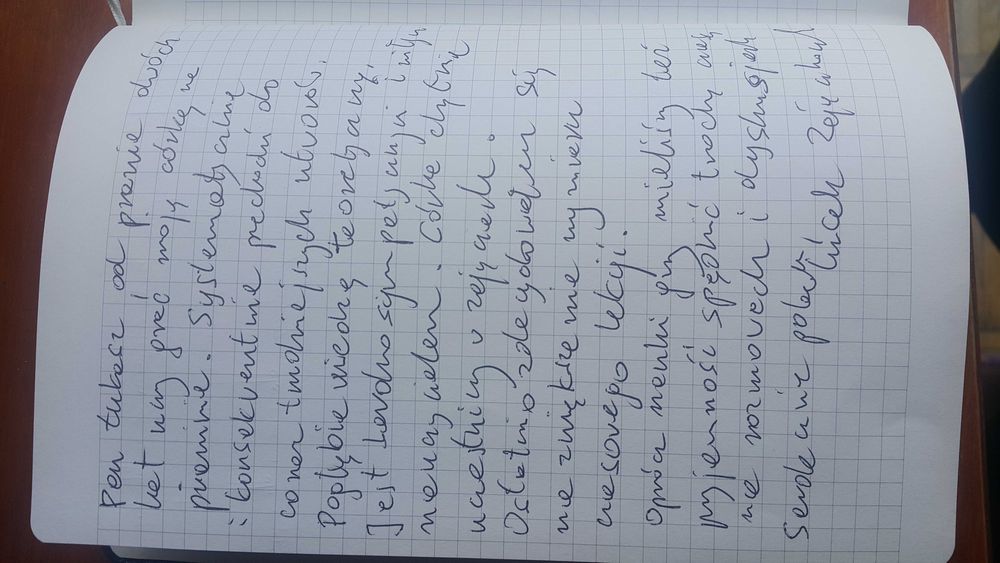 Pan Łukasz od prawie dwóch
lat uczy grać moją córkę na
pianinie. Systematycznie
i konsekwentnie przechodzi do
coraz trudniejszych utworów.
Pogłębia wiedzę teoretyczną.
Jest bardzo sympatycznym i miłym
nauczycielem. Córka chętnie
uczestniczy w zajęciach.
Ostatnio zdecydowałam się
na zwiększenie wymiaru
czasowego lekcji.
Oprócz nauki gry mieliśmy też
przyjemność spędzić trochę czasu
na rozmowach i dyskusjach
Serdecznie polecam zajęcia